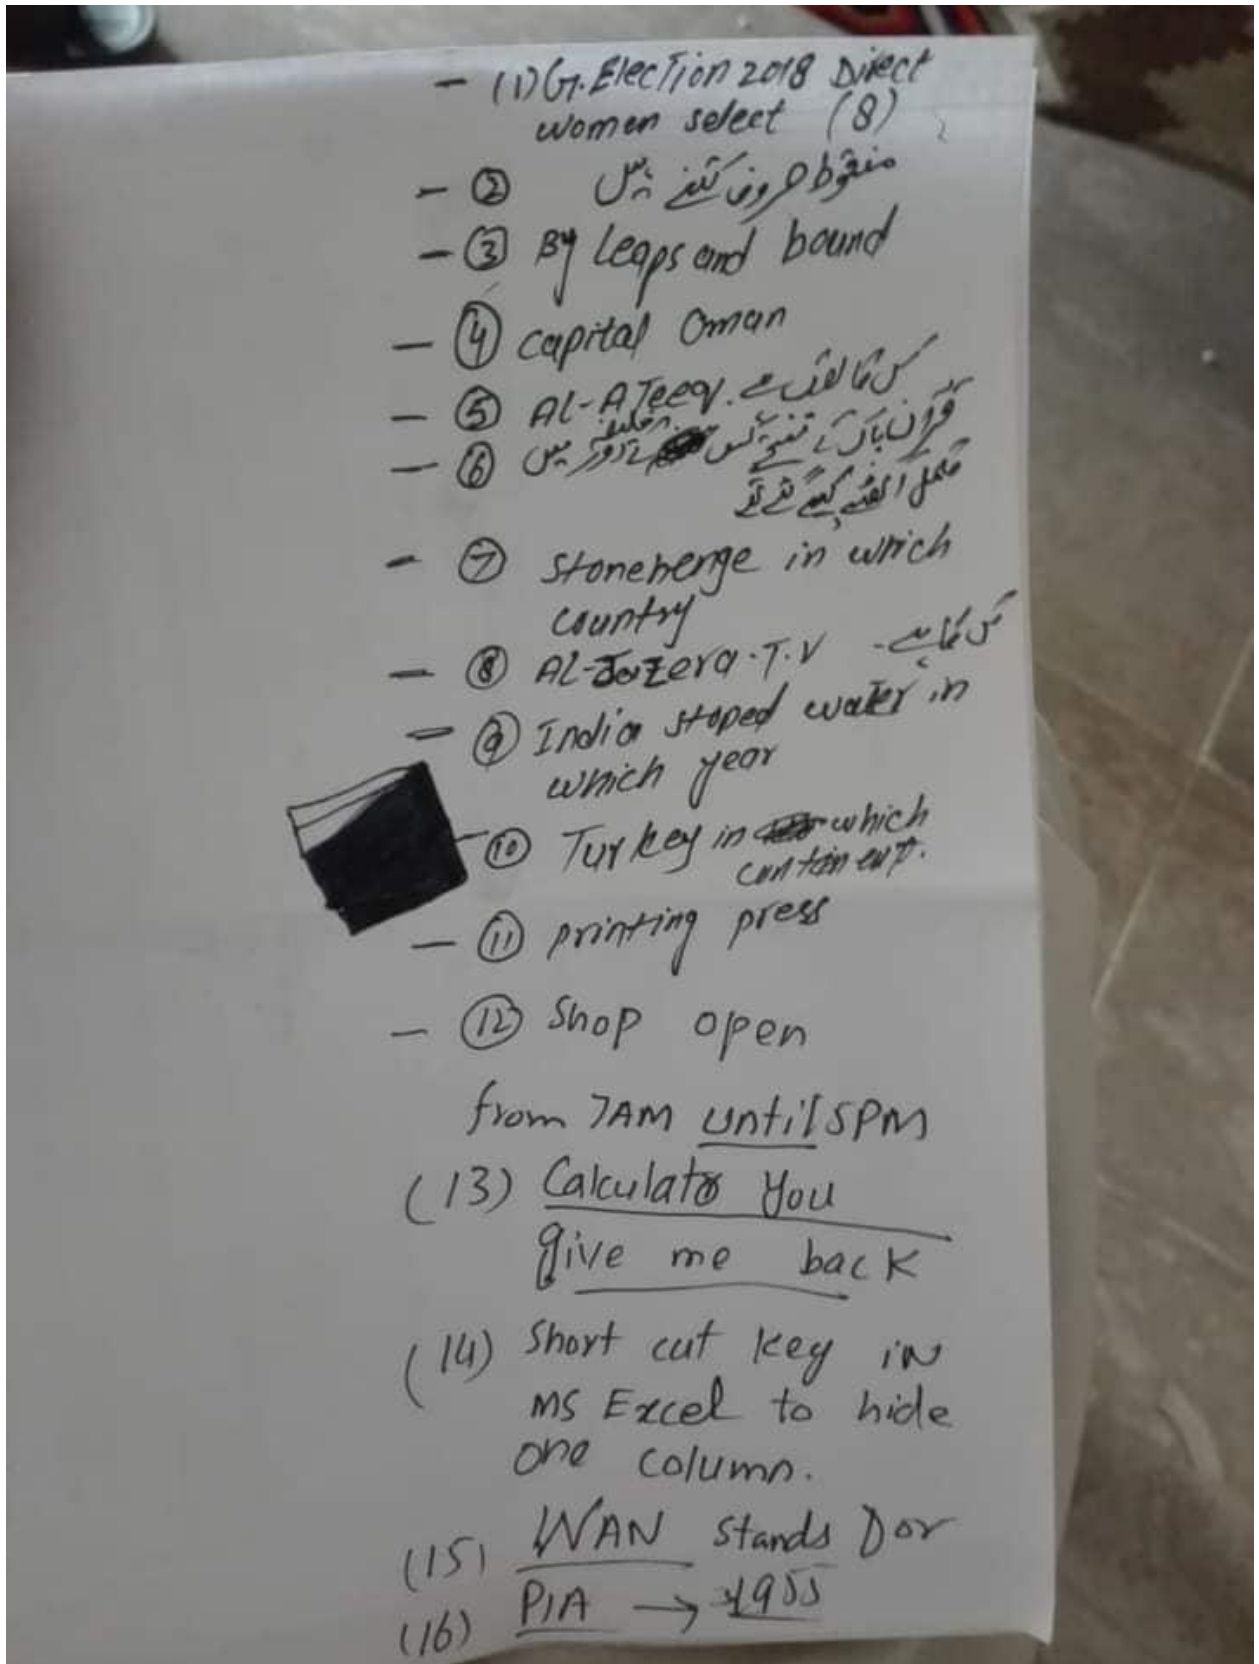 - (1) G. Election 2018 Direct
women select (8)
- (2) منقوط حروف کتنے ہیں
- (3) By Leaps and bound
- (4) Capital Oman
- (5) AL-ATeeq. کس کا لقب ہے
- (6) قرآن پاک کے نسخے کس خلیفہ کے دور میں
مکمل اکھٹے کیے گئے تھے
- (7) Stonehenge in which
country
- (8) AL-Jazera. T.V کس کا ہے -
- (9) India stoped water in
which year
- (10) Turkey in which
continent.
- (11) printing press
- (12) Shop open
from 7AM until 5PM
(13) Calculator You
give me back
(14) Short cut key in
MS Excel to hide
one column.
(15) WAN stands Dor
(16) PIA → 1955